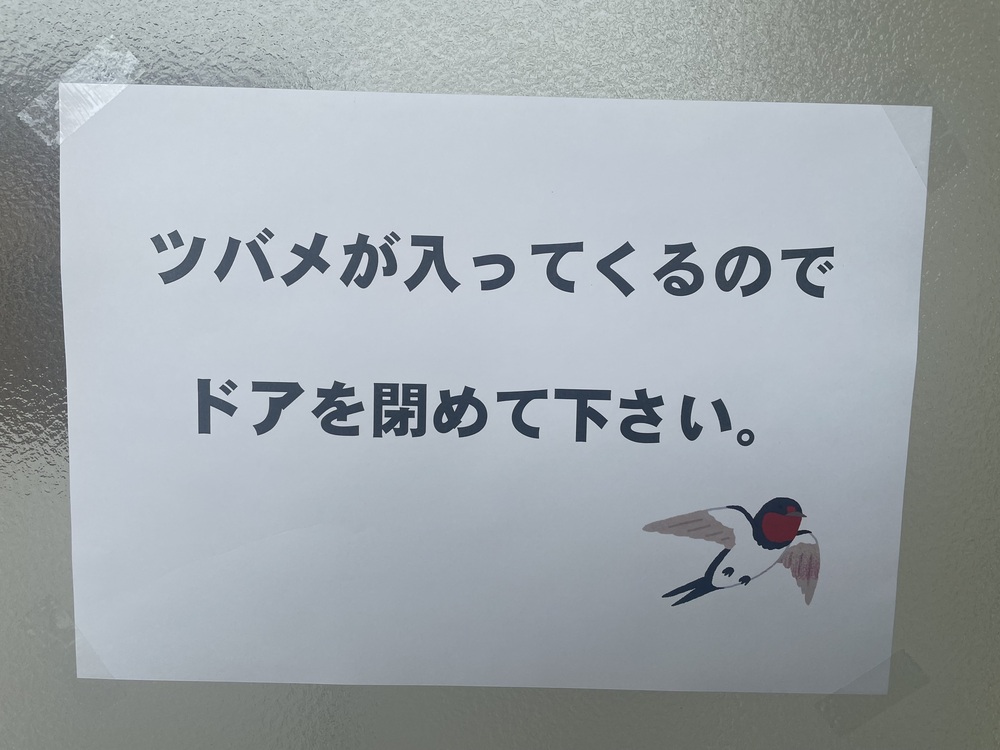 ツバメが入ってくるので
ドアを閉めて下さい。